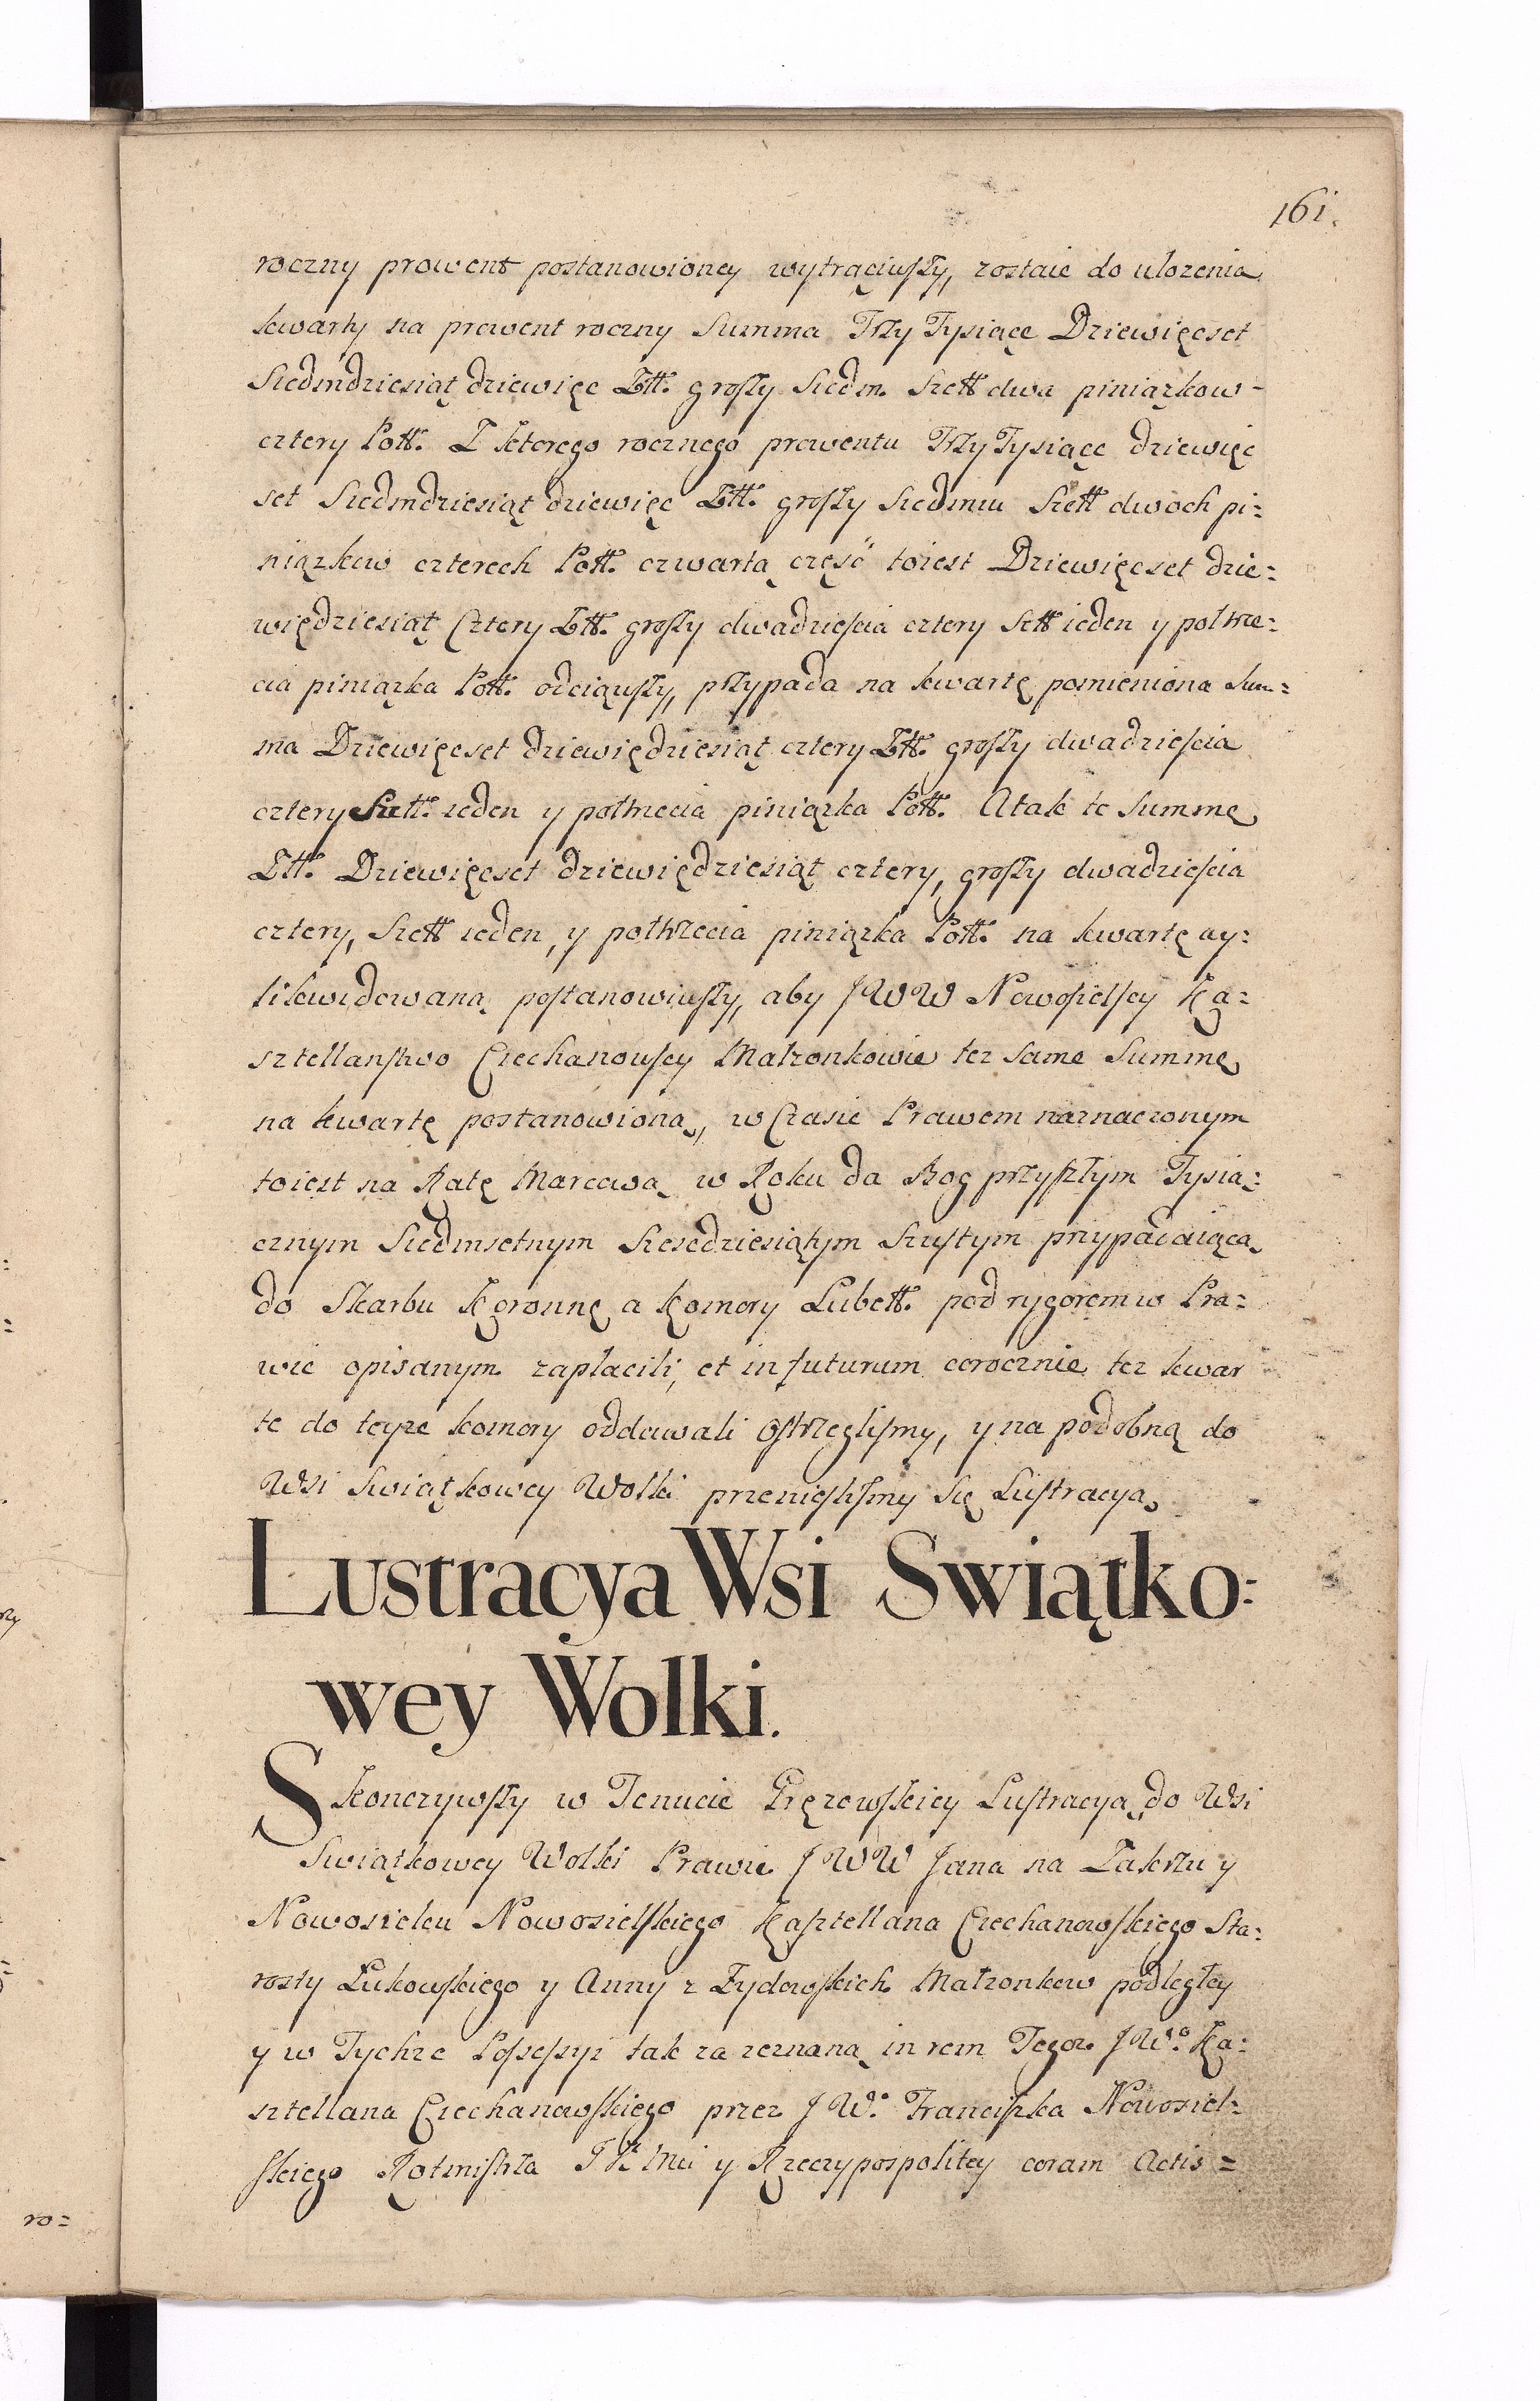 161.
roczny prowent postanowioney wytrąciwszy, zostaie do ulozenia
kwarty na prowent roczny Summa Trzy Tysiące Dziewięcset
Siedmdziesiąt dziewięc Złł. groszy Siedm. Szełł dwa piniązkow -
cztery Poll. Z ktorego rocznego prowentu Trzy Tysiące dziewięc
set Siedmdziesiąt dziewięc Złł. groszy Siedmiu Szełł dwoch pi=
niązkow czterech Poll. czwartą część toiest Dziewięcset dzie=
więdziesiąt Cztery Złł. groszy dwadziescia cztery Szełł ieden y poltrze=
cia piniązka Poll. odciąwszy, przypada na kwartę pomieniona Sum=
ma Dziewięcset dziewiędziesiąt cztery Złł. groszy dwadziescia
cztery Szełł. ieden y połtrzecia piniązka Poll. Atak te Summę
Złł. Dziewięcset dziewiędziesiąt cztery, groszy dwadziescia
cztery, Szełł ieden, y połtrzecia piniązka Poll. na kwartę wy=
likwidowaną postanowiwszy, aby JWW Nowosielscy Ka=
sztellanstwo Ciechanowscy Małzonkowie tez same Summę
na kwartę postanowioną, w Czasie Prawem naznaczonym
toiest na Ratę Marcową w Roku da Bog przyszłym Tysią=
cznym Siedmsetnym Szescdziesiątym Szustym przypadaiącą
do Skarbu Koronnę a Komory Lubell. pod rygorem w Pra=
wie opisanym zaplacili, et in futurum corocznie tez kwar
te do teyze komory oddawali ostrzeglismy, y na podobną do
Wsi Swiątkowey Wolki przenieslismy się Lustracyą
Lustracya Wsi Swiątko=
wey Wolki.
Skonczywszy w Tenucie Gręzowskiey Lustracyą, do Wsi
Swiątkowey Wolki Prawu JWW Jana na Zakrzu y
Nowosielcu Nowosielskiego Kasztellana Ciechanowskiego Sta=
rosty Łukowskiego y Anny z Zydowskich Małzonkow podległey
y w Tychze Possessyi tak za zeznaną in rem Tegoz JWº. Ka=
sztellana Ciechanowskiego przez JWº. Franciszka Nowosiel=
skiego Rotmistrza JK Mci y Rzeczypospolitey coram Actis =